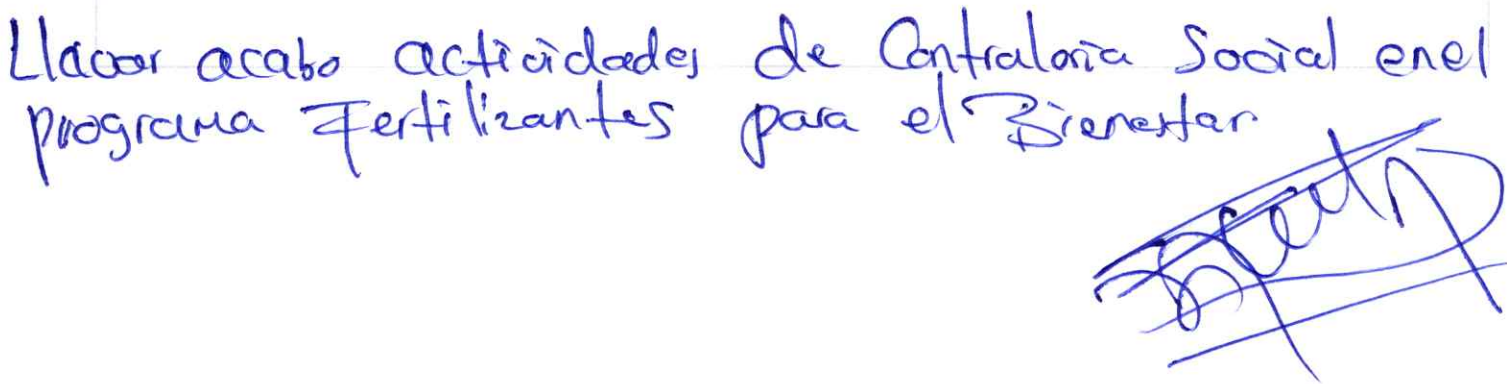 Llavar acabo actividades de Contraloria Social enel
programa Fertilizantes para el Bienestar